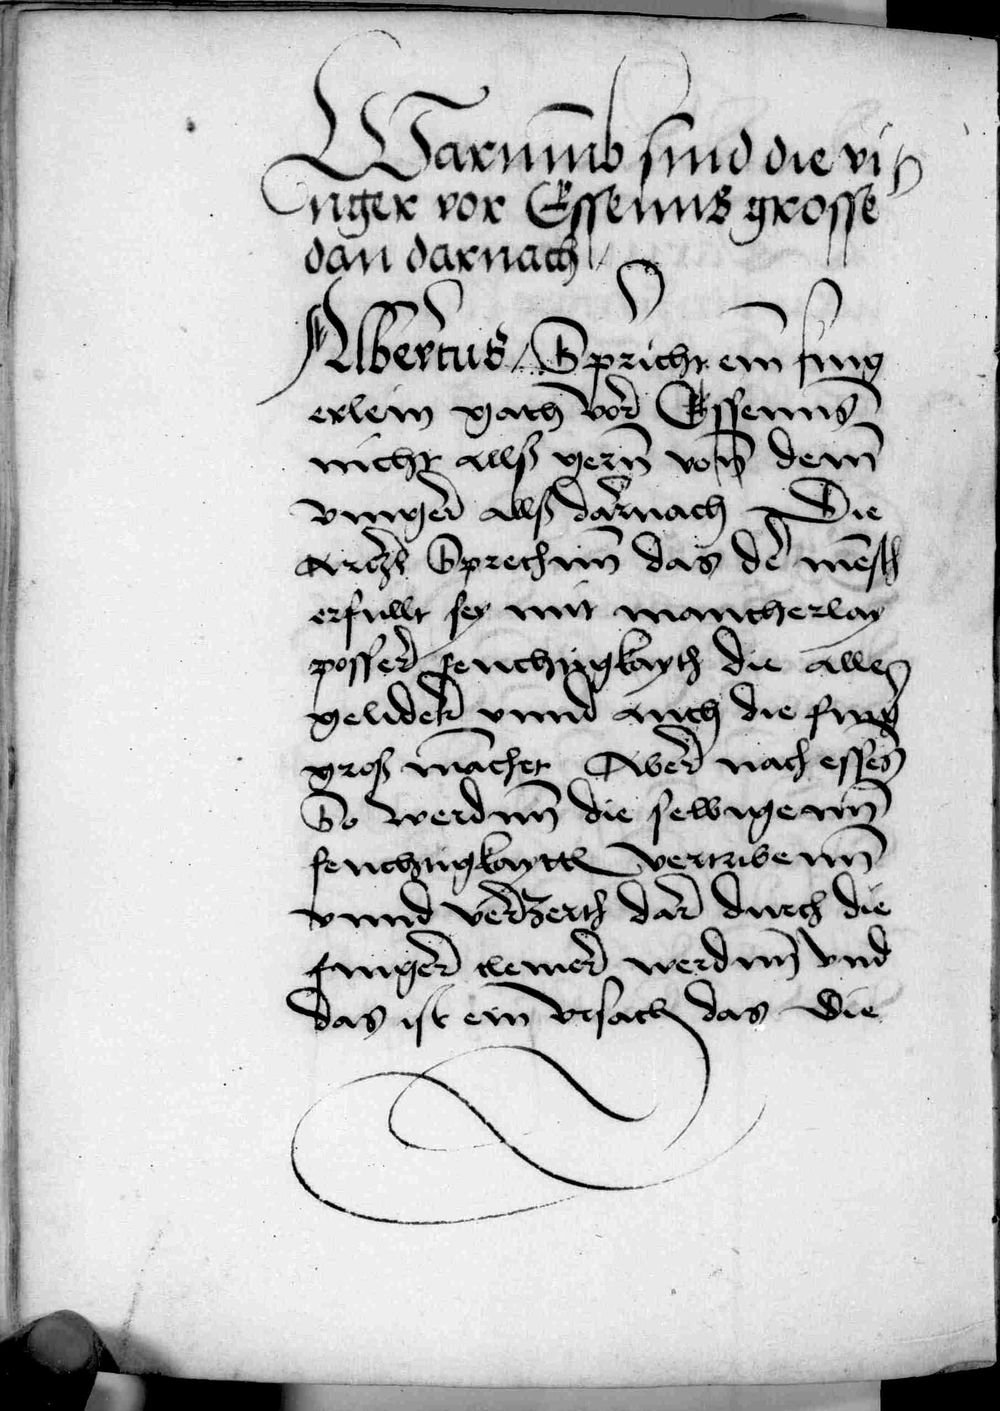 Warumb sind die vi
nger vor Essenns grosse
dan darnach
Albertus Spricht ein fing
erlein gath vor Essenns
nicht allß gern von dem
vinger allß darnach Die
Artzt Sprechnn das de mensch
erfullt sey mit mancherlay
posser feuchtigkayth die alle
gelider vnnd auch die fing
groß machet Aber nach essen
So werdnn die selbigenn
feuchtigkaytt vertribenn
vnnd verzerth dar durch die
finger clener werdnn vnd
das ist ein vrsach das die